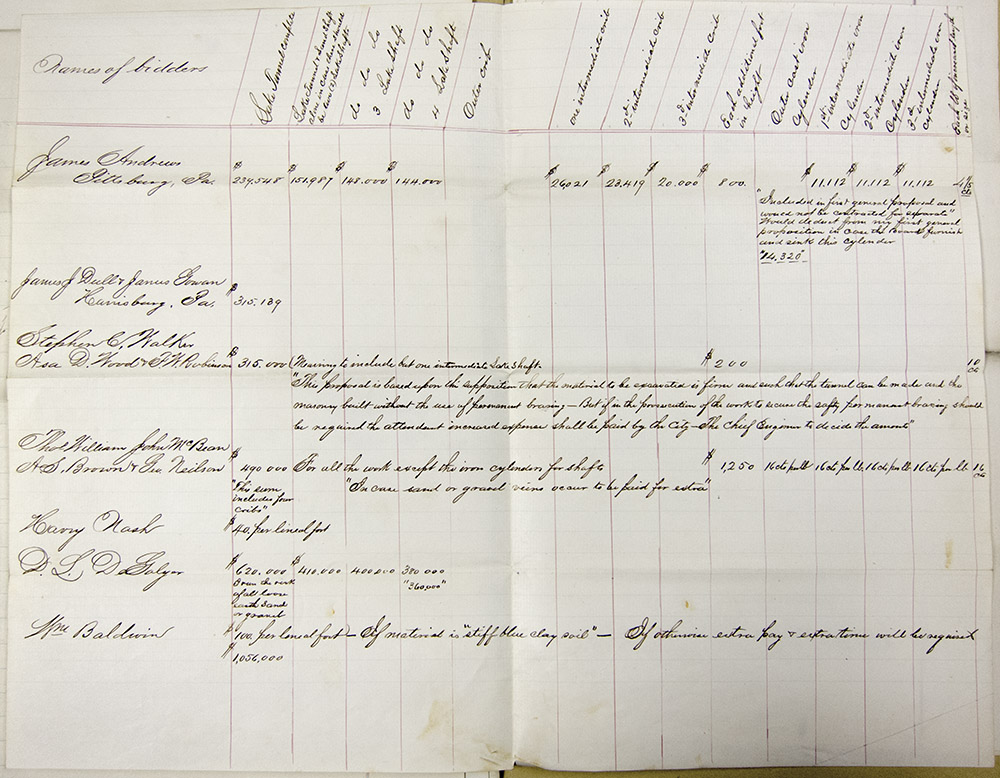 Names of bidders
Lake Tunnel complete
Lake Tunnel & land shaft alone in case there should be two (2) Lake Shafts
do do do 3 Lake Shaft
do do do 4 Lake Shaft
Outer crib
one intermediate crib
2d. intermediate crib
3d. intermediate crib
Each additional foot in height
Outer cast iron Cylinder
1st intermediate iron Cylinder
2d. intermediate iron Cylinder
3d. intermediate iron cylinder
James Andrews
Pittsburg, Pa. $239.548 $151.987 $148.000 $144.000 $26021 $23.419 $20.000 $800. $11.112 $11.112 $11.112
"Included in first general proposal and
would not be contracted for separate"
Would deduct from my first general
proposition in case the Board furnish
and sink this cylinder
"14,320"
James J Dull & James Gowan
Harrisburg, Pa. $315.139
Stephen C, Walker
Asa D. Wood & F. W. Robinson $315.000 (Meaning to include but one intermediate Lake Shaft. $200 10 cts
"This proposal is based upon the supposition that the material to be excavated is firm and such that the tunnel can be made and the
masonry built without the use of permanent bracing – But if in the prosecution of the work to secure the safty, permanant bracing should
be required the attendent increased expense shall be paid by the City – The Chief Engineer to decide the amount"
Thos William John McBean
A. S. Brown & Geo. Neilson $490 000 For all the work except the iron cylinders for shafts $1,250 16 cts per lb 16 cts per lb. 16 cts per lb. 16 cts per lb. 16 cts
"This sum
includes four
cribs"
"In case sand or gravel viens occur to be paid for extra"
Harry Nash $40. per lineal foot
D. L. DeGolyer $620.000 $410.000 400000 380 000
"360,000"
from the risk
of all loose
earth Sand
or gravel
Wm Baldwin $100. per lineal foot – If material is "stiff blue clay soil" – If otherwise extra pay & extra time will be required
$1,056,000